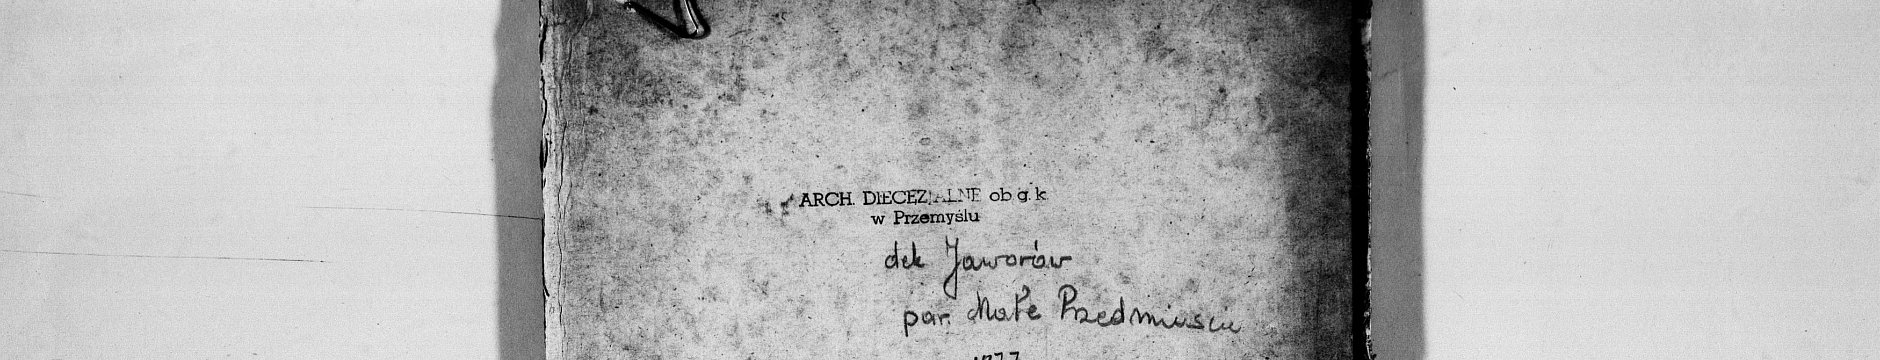 ARCH. DIECEZJALNE ob g. k.
w Przemyślu
dek Jaworów
par. Małe Przedmieście